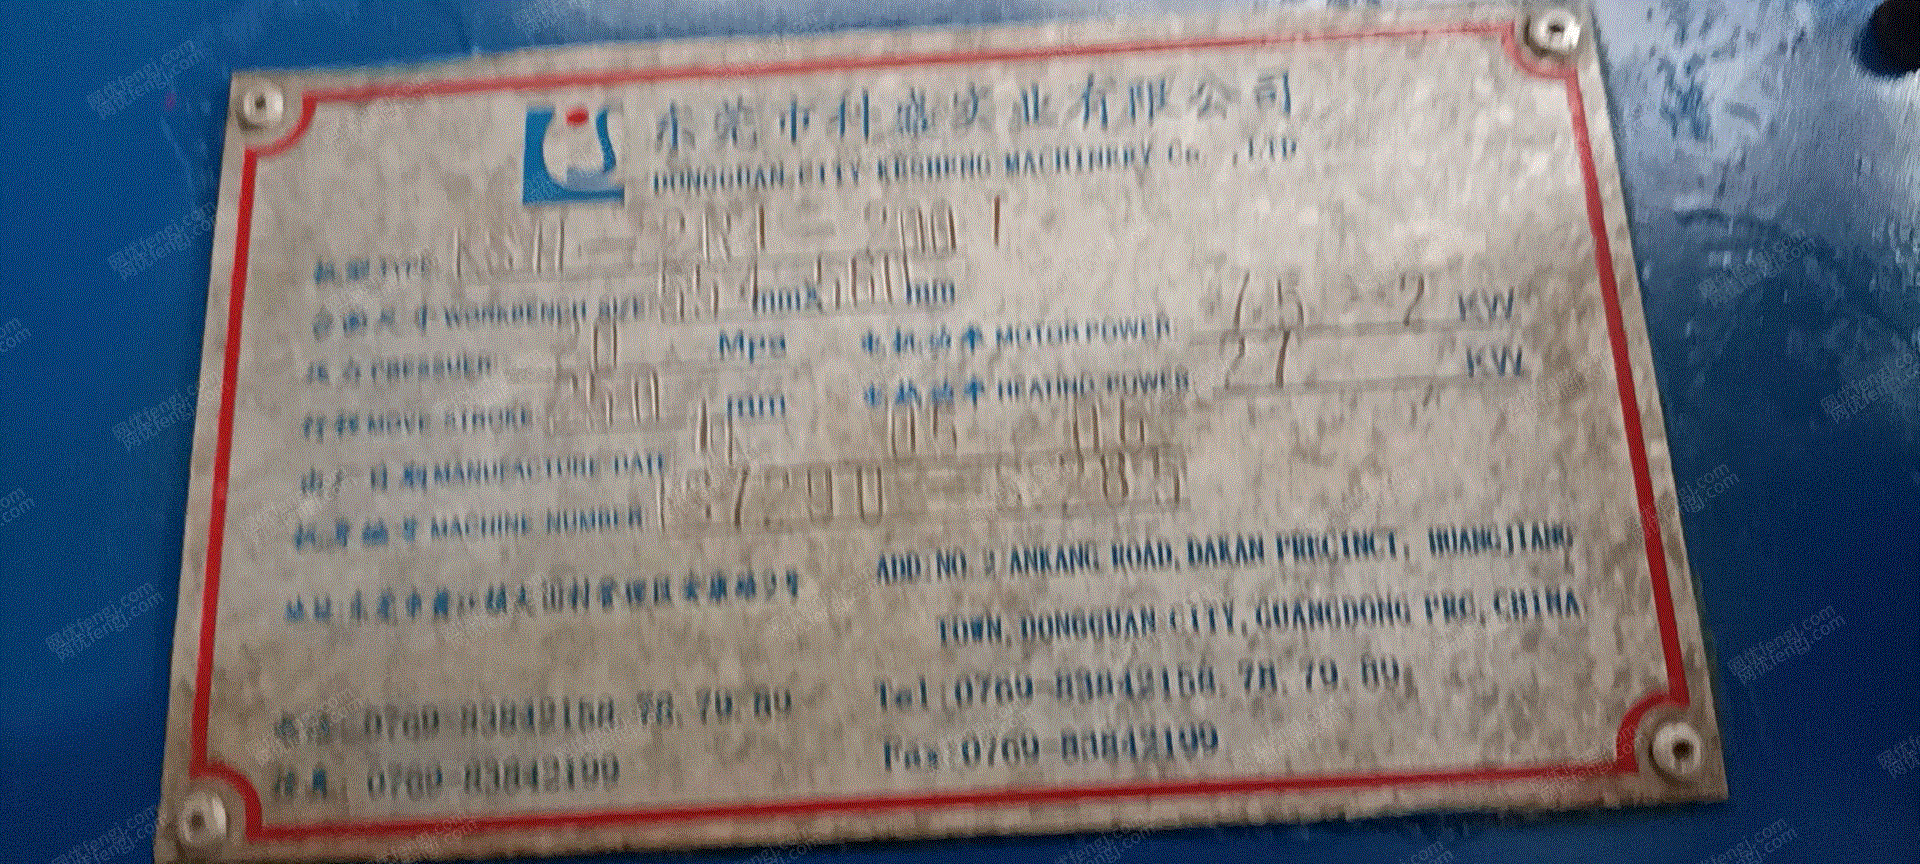 东莞市科盛实业有限公司
DONGGUAN CITY KESHENG MACHINERY Co.,LTD
机型TYPE: KSH-2R1-200T
台面尺寸WORKBENCH SIZE: mmX560mm
压力PRESSUER: 20 Mpa 电机功率MOTOR POWER: KW
行程MOVE STROKE: 250 mm 电热功率HEATING POWER: 27 KW
出厂日期MANUFACTURE DATE
机身编号MACHINE NUMBER:
地址:东莞市黄江镇大冚村管理区安康路2号
ADD:NO.2 ANKANG ROAD,DAKAN PRECINCT, HUANGJIANG
TOWN,DONGGUAN CITY,GUANGDONG PRC,CHINA.
电话: 0769-83842158.78.79.89
Tel:0769-83842158.78.79.89
传真: 0769-83842199
Fax:0769-83842199